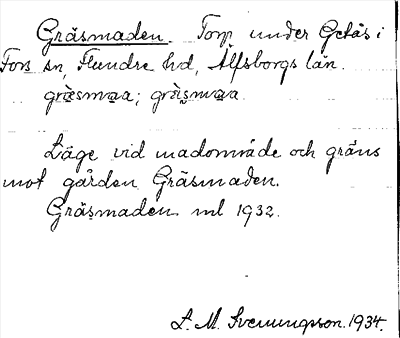 Gräsmaden. Torp under Getås i
Fors sn, Flundre hd, Älfsborgs län.
gräsmaa; gräsmaa
Läge vid madområde och gräns
mot gården Gräsmaden.
Gräsmaden ml 1932.
L. M. Svenungsson. 1934.